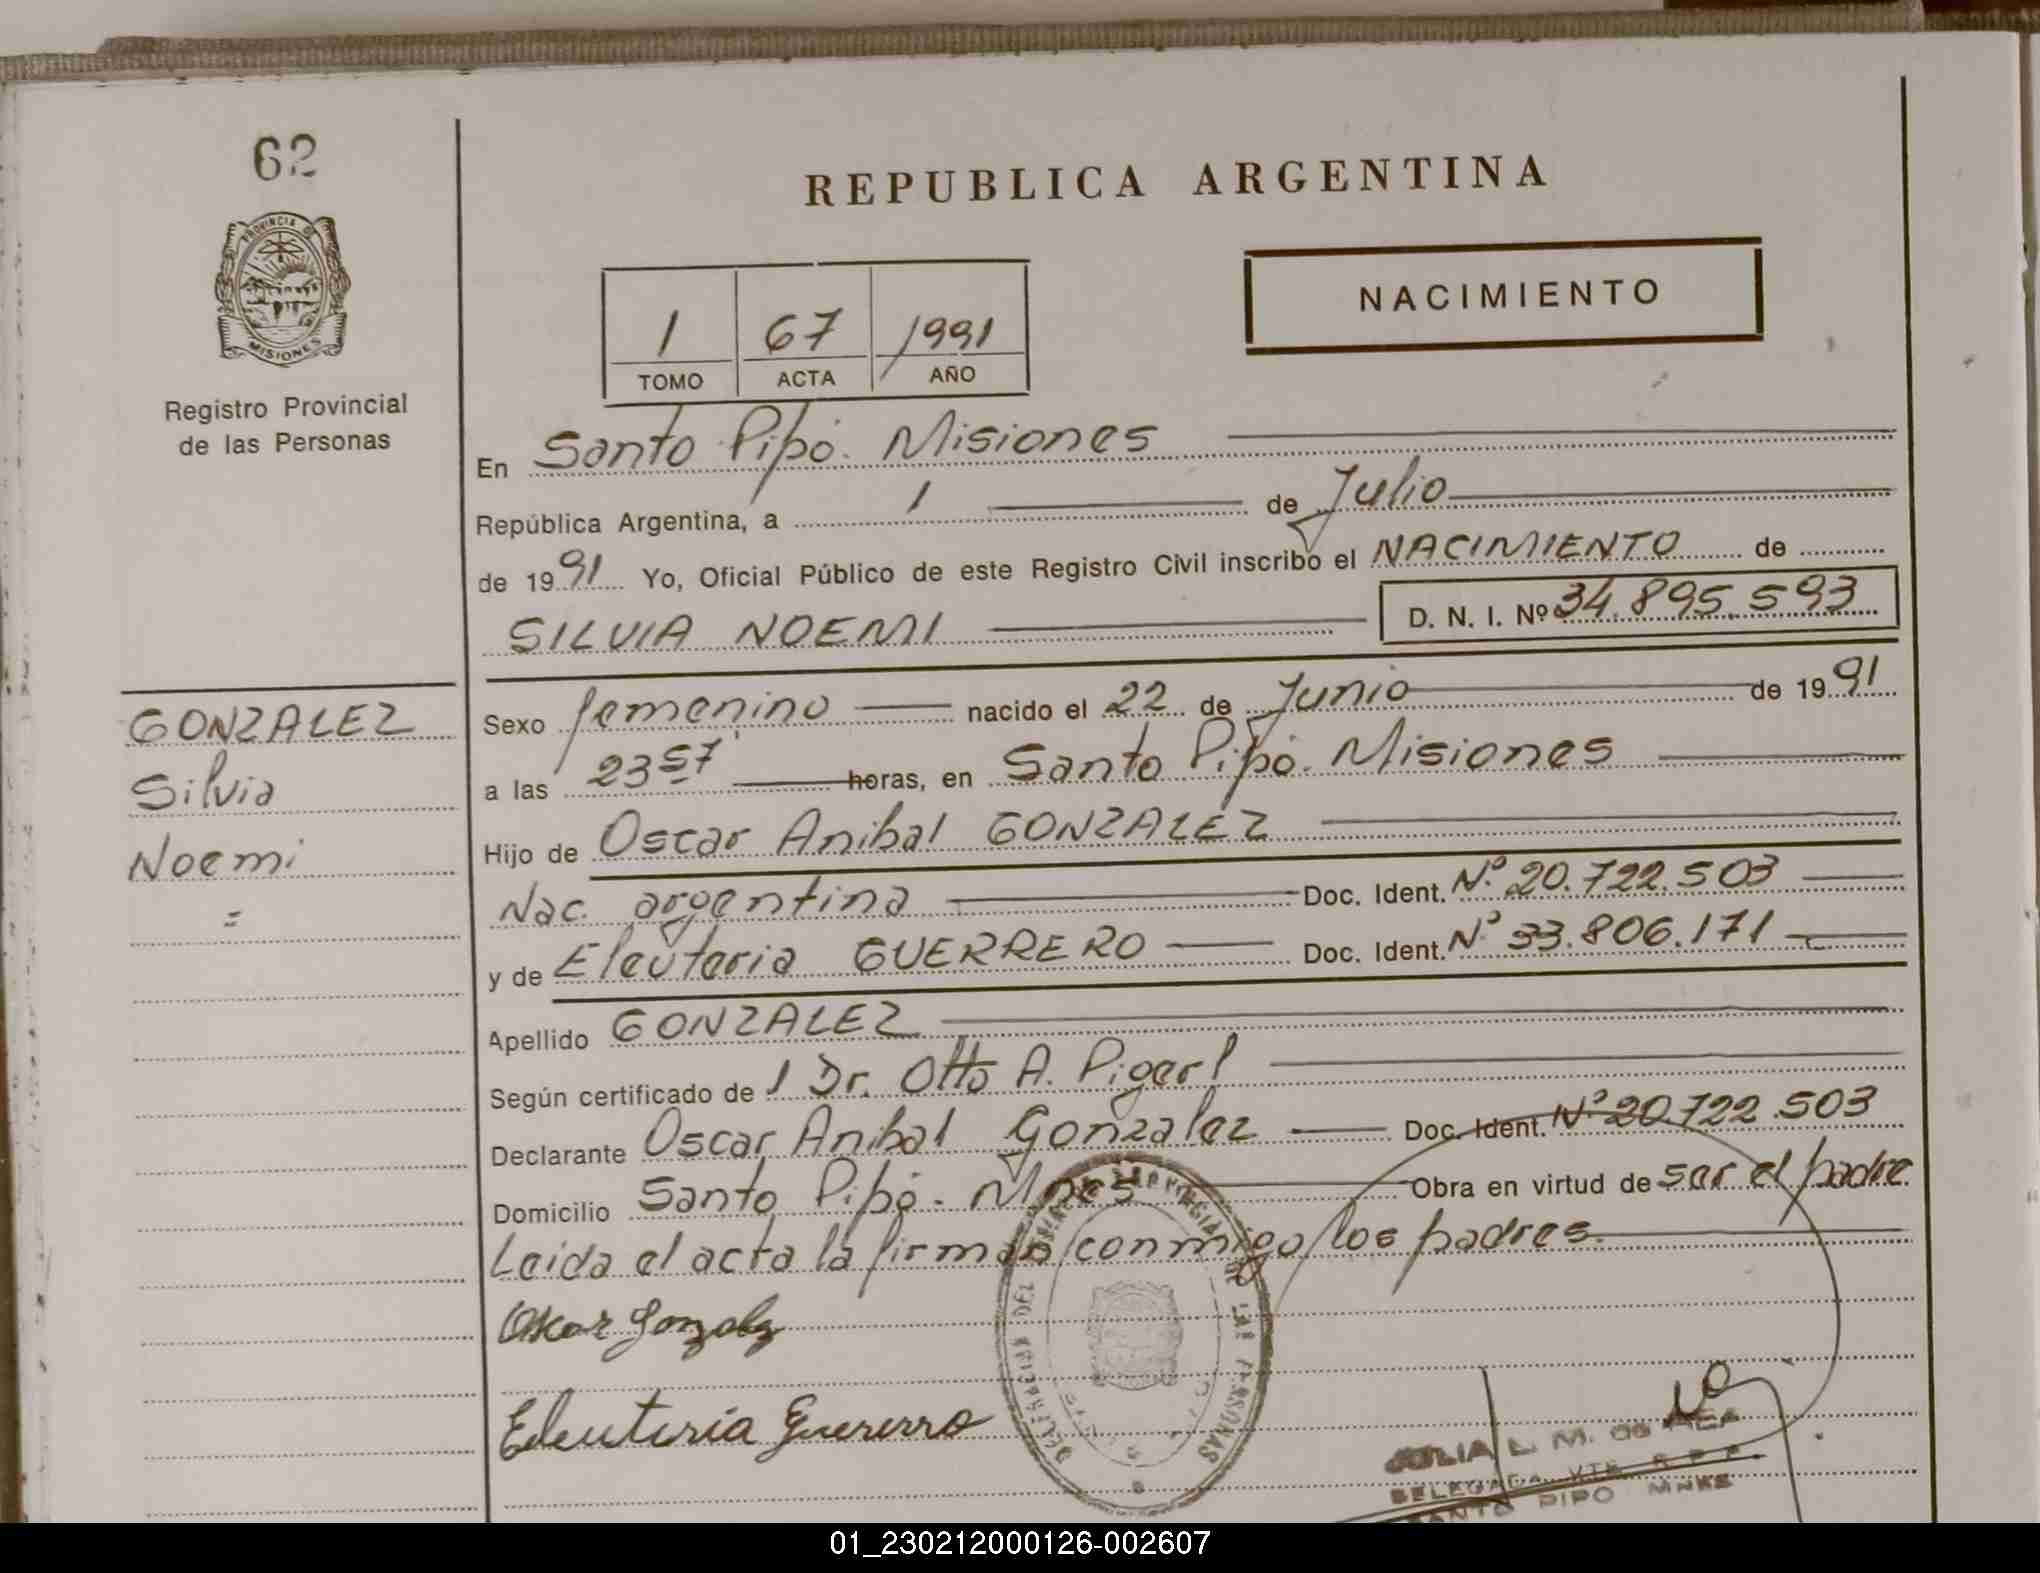 62
REPUBLICA ARGENTINA
PROVINCIA DE
MISIONES
Registro Provincial
de las Personas
1 67 1991
TOMO ACTA AÑO
NACIMIENTO
En Santo Pipó. Misiones
República Argentina, a 1 de Julio
de 1991 Yo, Oficial Público de este Registro Civil inscribo el NACIMIENTO de
SILVIA NOEMI D. N. I. Nº 34.895.593
GONZALEZ
Silvia
Noemi
=
Sexo femenino nacido el 22 de Junio de 1991
a las 23 57 horas, en Santo Pipó. Misiones
Hijo de Oscar Anibal GONZALEZ
Nac. argentina Doc. Ident. Nº 20.722.503
y de Eleuteria GUERRERO Doc. Ident. Nº 33.806.171
Apellido GONZALEZ
Según certificado de 1 Dr. Otto A. Pigerl
Declarante Oscar Anibal Gonzalez Doc. Ident. Nº 20.722.503
Domicilio Santo Pipó - Mnes Obra en virtud de ser el padre
Leida el acta la firman conmigo los padres.
Oscar Gonzalez
Eleuteria Guererro
PROVINCIAL DE LAS PERSONAS
JULIA L. M. de
DELEGADA R P P
SANTO PIPO MNES
01_230212000126-002607